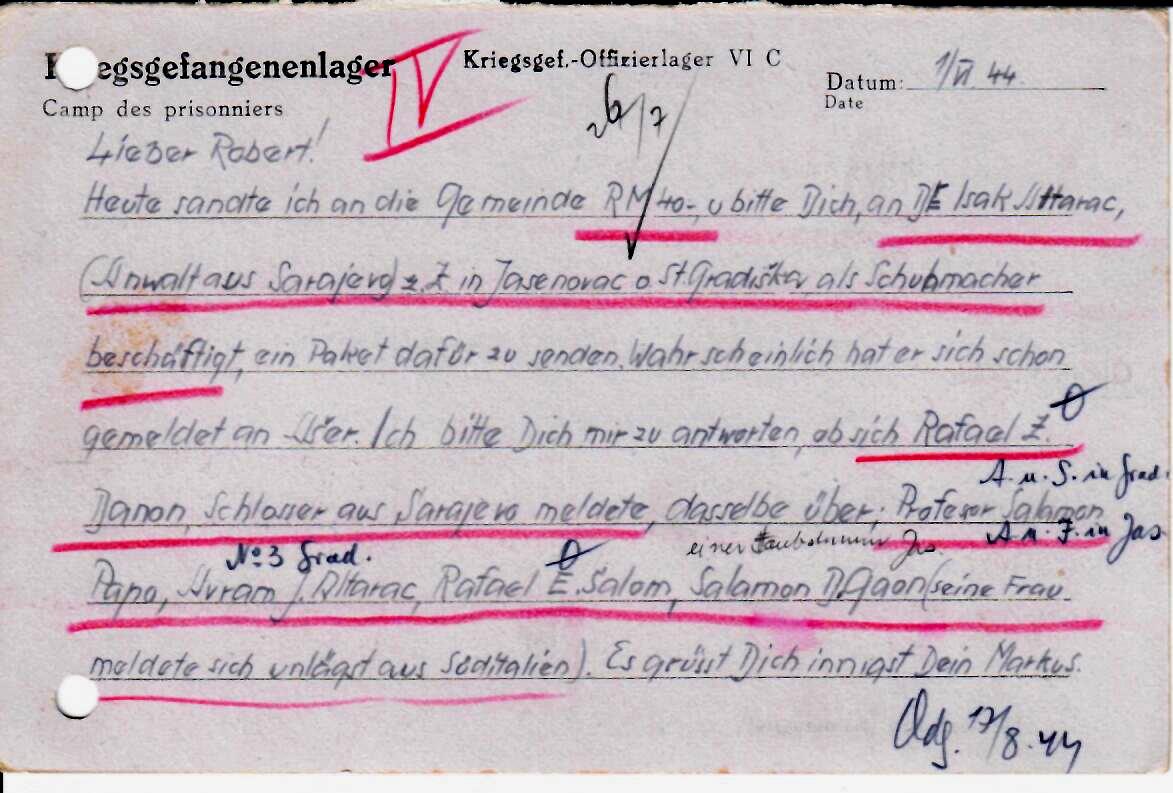 Kriegsgefangenenlager
Camp des prisonniers
IV
Kriegsgef.-Offizierlager VI C
Datum: 1/VI 44
Date
26/7
Lieber Robert!
Heute sandte ich an die Gemeinde RM 40-, u bitte Dich, an Isak Altarac,
(Anwalt aus Sarajevo) z. Z. in Jasenovac o St. Gradiška, als Schuhmacher
beschäftigt, ein Paket dafür zu senden. Wahrscheinlich hat er sich schon
gemeldet an Ašer. Ich bitte Dich mir zu antworten, ob sich Rafael Ž.
A. u. S. in Grad.
Danon, Schlosser aus Sarajevo meldete, dasselbe über: Profesor Salamon
No 3 Grad. einer Jas. A. u. J. in Jas.
Papo, Avram J. Altarac, Rafael E. Salom, Salamon D. Gaon (seine Frau
meldete sich unlägst aus Süditalien). Es grüsst Dich innigst Dein Markus.
Odg. 17/8. 44